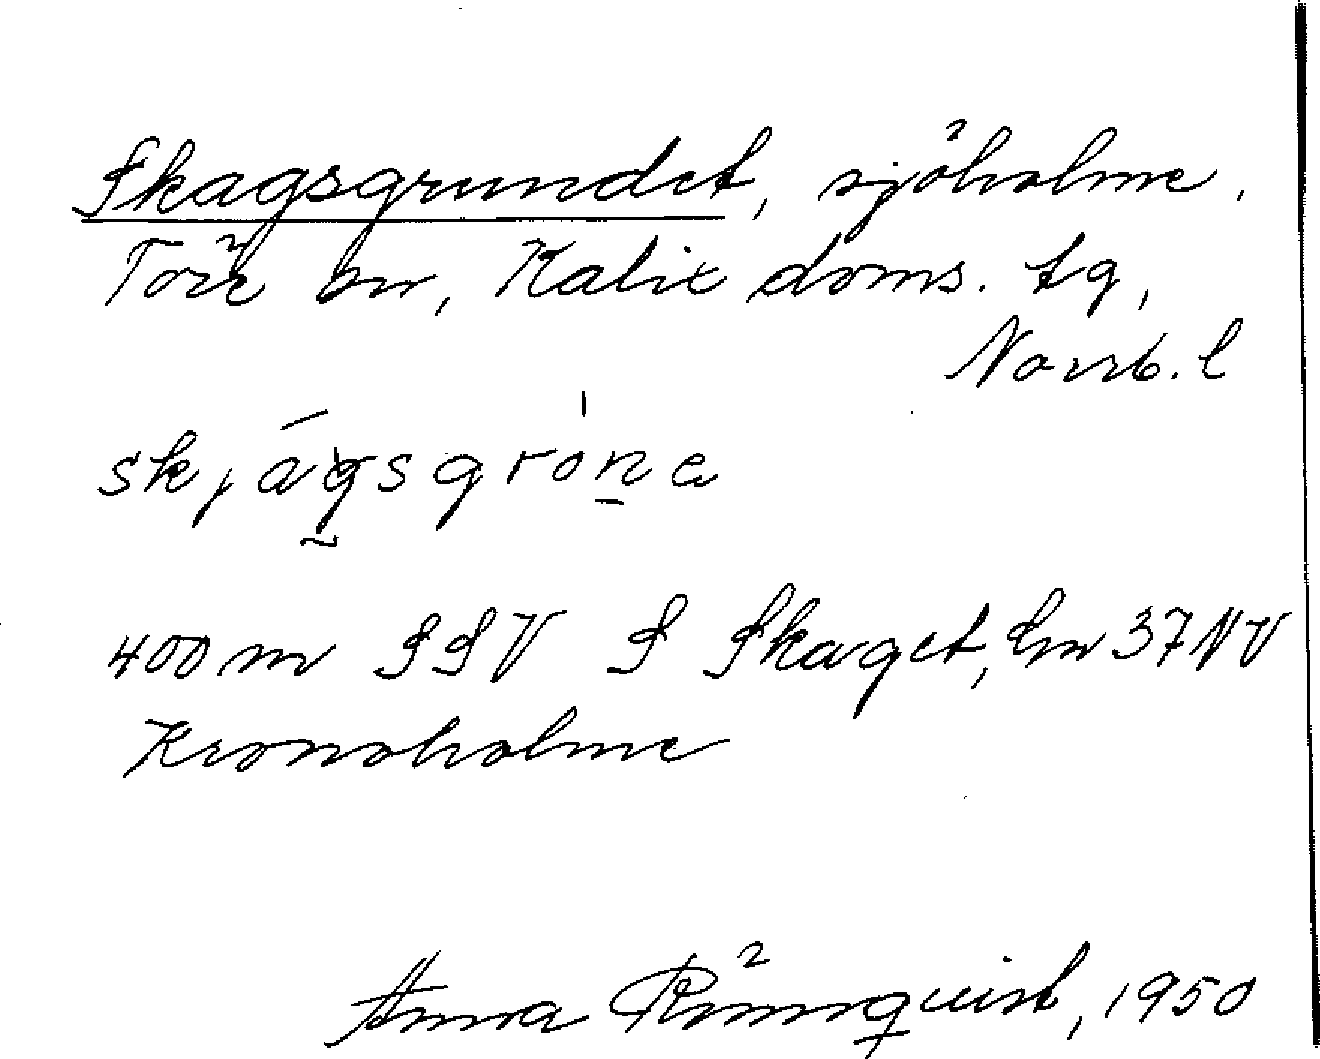 Skagsgrundet, sjöholme,
Töre sn, Kalix doms. tg,
Norrb. l
skjágsgróne
400 m SSV S Skaget, En 37 NV
Kronoholme
Anna Rönnquist, 1950